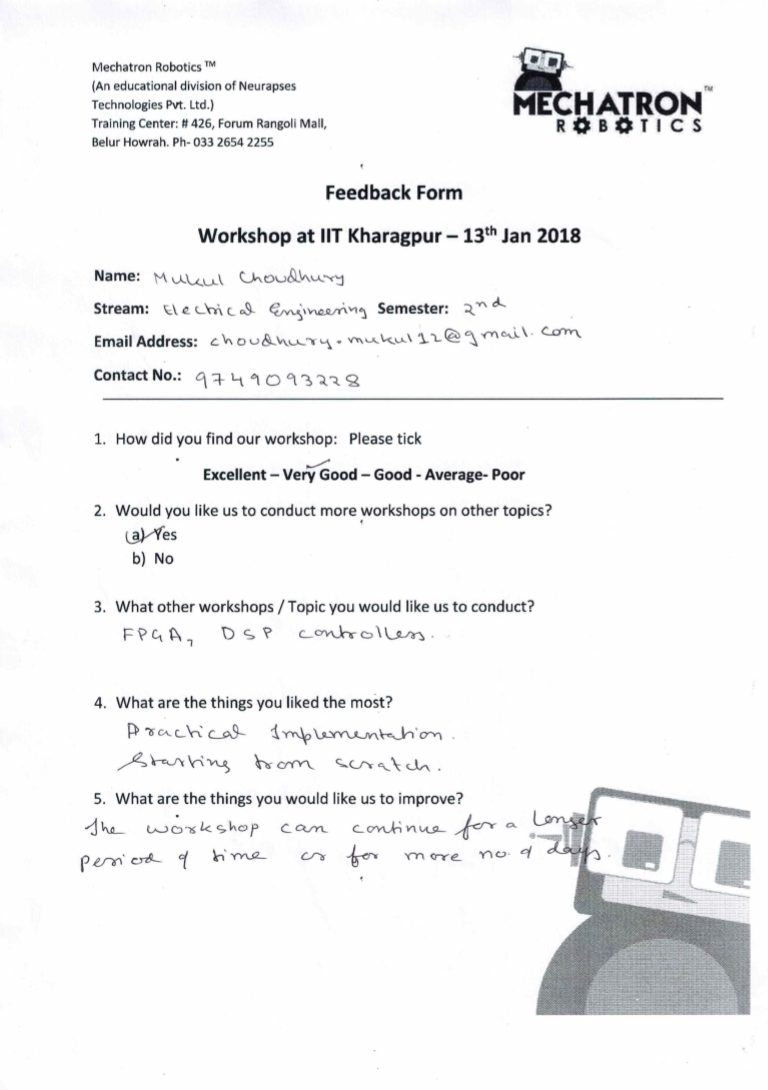 Mechatron Robotics ™
(An educational division of Neurapses
Technologies Pvt. Ltd.)
Training Center: # 426, Forum Rangoli Mall,
Belur Howrah. Ph- 033 2654 2255
MECHATRON™
ROBOTICS
Feedback Form
Workshop at IIT Kharagpur – 13th Jan 2018
Name: Mukul Choudhury
Stream: Electrical Engineering Semester: 2nd
Email Address: choudhury.mukul12@gmail.com
Contact No.: 9749093228
1. How did you find our workshop: Please tick
Excellent – Very Good – Good - Average- Poor
2. Would you like us to conduct more workshops on other topics?
(a) Yes
b) No
3. What other workshops / Topic you would like us to conduct?
FPGA, DSP controllers.
4. What are the things you liked the most?
Practical Implementation.
Starting from scratch.
5. What are the things you would like us to improve?
The workshop can continue for a longer
period of time or for more no. of days.